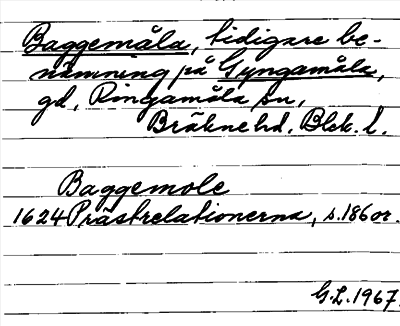 Baggemåla, tidigare be-
nämning på Gyngamåla,
gd, Ringamåla sn,
Bräkne hd. Blek. l.
Baggemole
1624 Prästrelationerna, s. 186 or.
G.L. 1967.